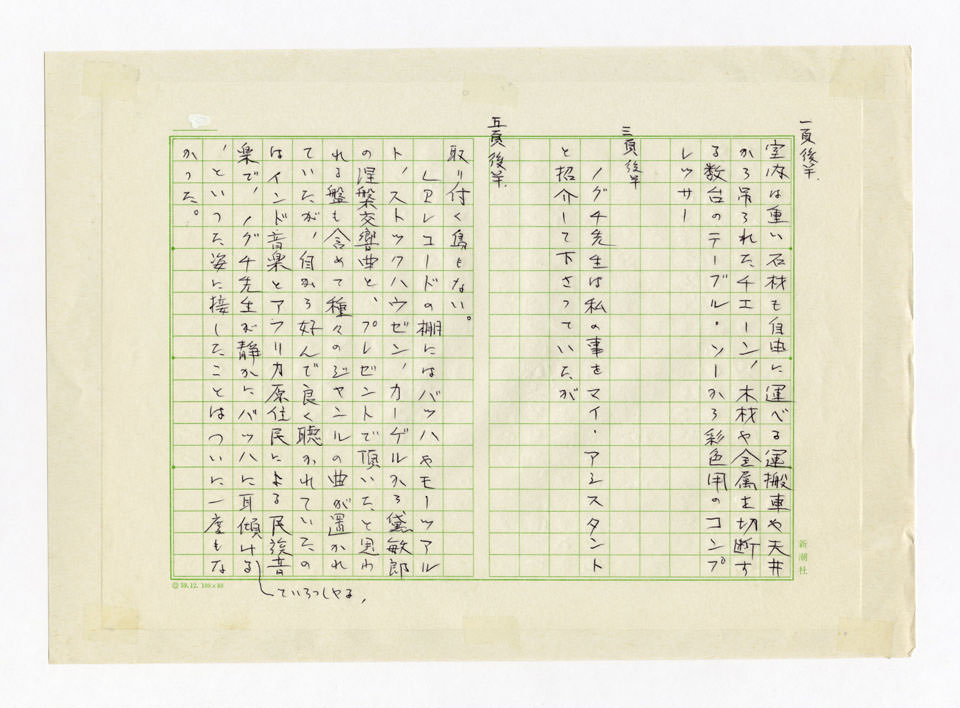 一頁後半
室内は重い石材も自由に運べる運搬車や天井
から吊られたチエーン、木材や金属を切断す
る数台のテーブル・ソーから彩色用のコンプ
レッサー
三頁後半
ノグチ先生は私の事をマイ・アシスタント
と紹介して下さっていたが
五頁後半
取り付く島もない。
LPレコードの棚にはバッハやモーツアル
ト、ストックハウゼン、カーゲルから黛敏郎
の涅槃交響曲と、プレゼントで頂いたと思わ
れる盤も含めて種々のジャンルの曲が置かれ
ていたが、自から好んで良く聴かれていたの
はインド音楽とアフリカ原住民による民族音
楽で、ノグチ先生が静かにバッハに耳傾ける
ていらっしゃる、
、といった姿に接したことはついに一度もな
かった。
新潮社
59.12.